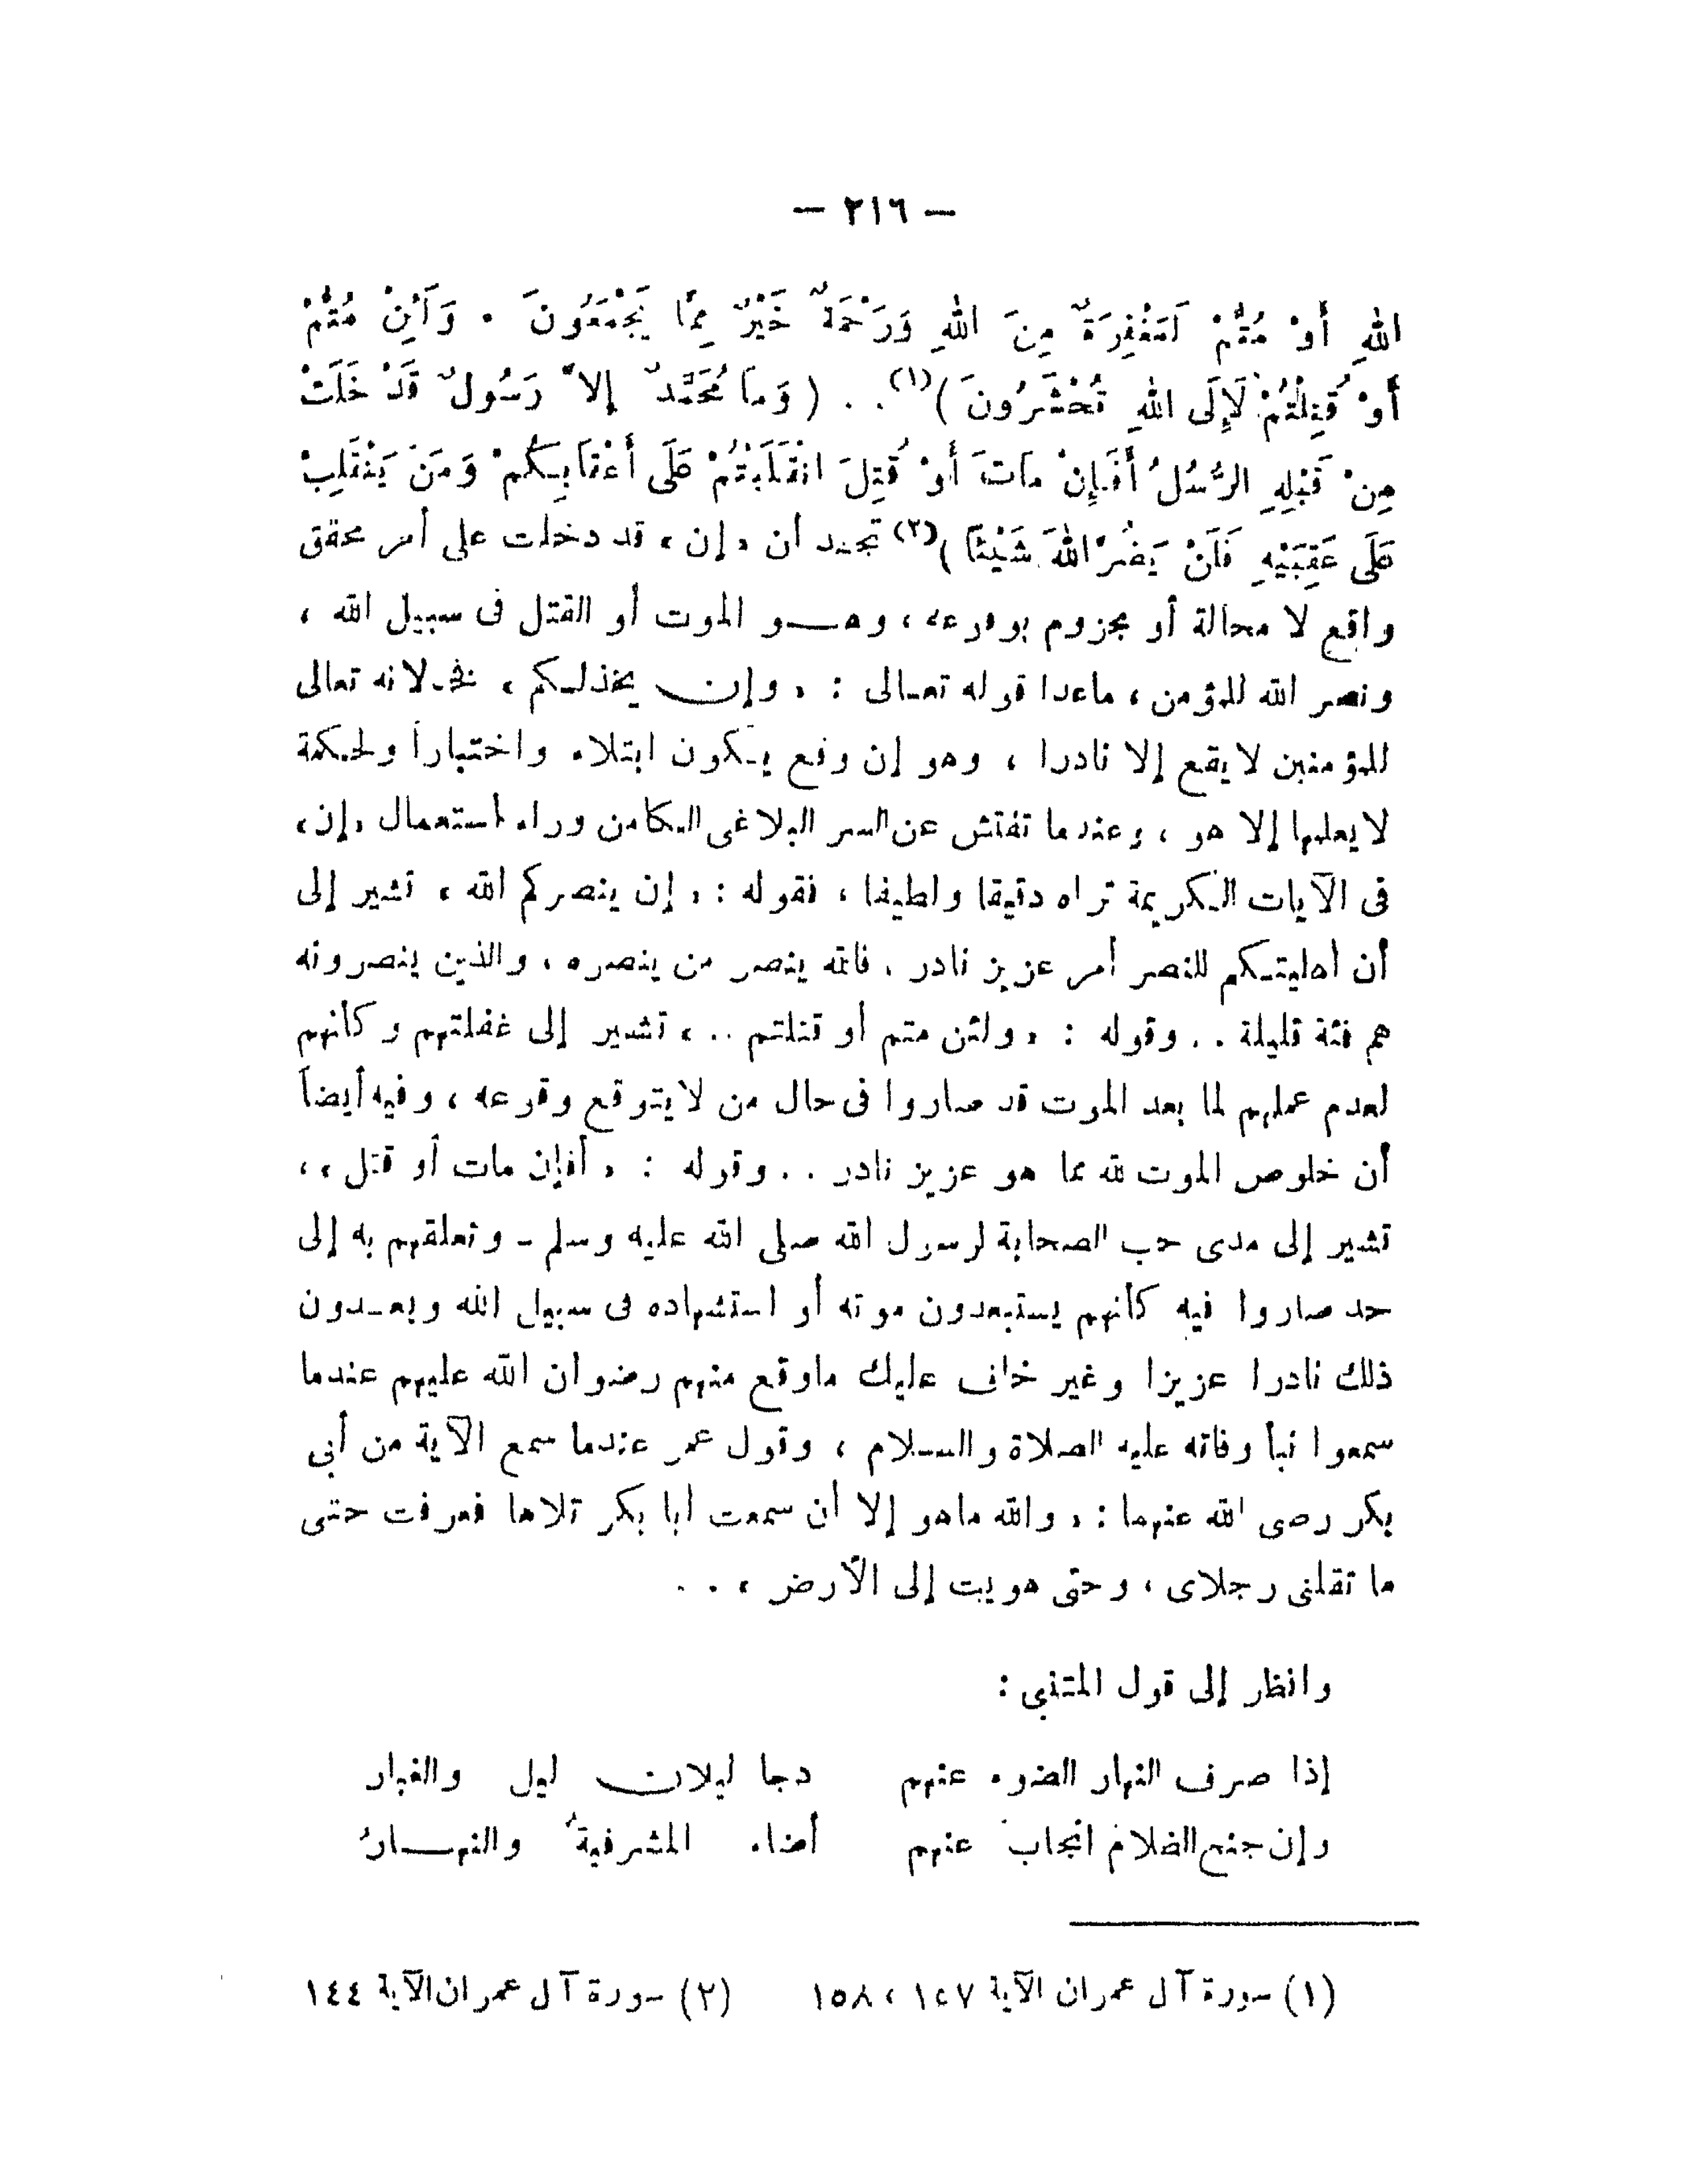 — ٢١٦ —
اللهِ أَوْ مُتُّمْ لَمَغْفِرَةٌ مِنَ اللهِ وَرَحْمَةٌ خَيْرٌ مِمَّا يَجْمَعُونَ . وَلَئِنْ مُتُّمْ
أَوْ قُتِلْتُمْ لَإِلَى اللهِ تُحْشَرُونَ )(١) . . ( وَمَا مُحَمَّدٌ إلاَّ رَسُولٌ قَدْ خَلَتْ
مِنْ قَبْلِهِ الرُّسُلُ أَفَإِنْ مَاتَ أَوْ قُتِلَ انْقَلَبْتُمْ عَلَى أَعْقَابِكُمْ وَمَنْ يَنْقَلِبْ
عَلَى عَقِبَيْهِ فَلَنْ يَضُرَّ اللهَ شَيْئًا )(٢) تجد أن « إن » قد دخلت على أمر محقق
واقع لا محالة أو مجزوم بوقوعه ، وهو الموت أو القتل فى سبيل الله ،
ونصر الله للمؤمن ، ماعدا قوله تعالى : « وإن يخذلكم » فخذلانه تعالى
للمؤمنين لا يقع إلا نادرا ، وهو إن وقع يكون ابتلاء واختباراً ولحكمة
لا يعلمها إلا هو ، وعندما تفتش عن السر البلاغى الكامن وراء استعمال «إن»
فى الآيات الكريمة تراه دقيقا ولطيفا ، فقوله : « إن ينصركم الله » تشير إلى
أن أهليتكم للنصر أمر عزيز نادر . فالله ينصر من ينصره ، والذين ينصرونه
هم فئة قليلة . . وقوله : « ولئن متم أو قتلتم .. » تشير إلى غفلتهم وكأنهم
لعدم عملهم لما بعد الموت قد صاروا فى حال من لا يتوقع وقوعه ، وفيه أيضاً
أن خلوص الموت لله مما هو عزيز نادر . . وقوله : « أفإن مات أو قتل » ،
تشير إلى مدى حب الصحابة لرسول الله صلى الله عليه وسلم - وتعلقهم به إلى
حد صاروا فيه كأنهم يستبعدون موته أو استشهاده فى سبيل الله ويعدون
ذلك نادرا عزيزا وغير خاف عليك ماوقع منهم رضوان الله عليهم عندما
سمعوا نبأ وفاته عليه الصلاة والسلام ، وقول عمر عندما سمع الآية من أبى
بكر رضى الله عنهما : « والله ماهو إلا أن سمعت أبا بكر تلاها فعرفت حتى
ما تقلنى رجلاى ، وحتى هويت إلى الأرض » . .
وانظر إلى قول المتنبى :
إذا صرف النهار الضوء عنهم دجا ليلان ليل والغبار
وإن جنح الظلام انجاب عنهم أضاء المشرفيةُ والنهارُ
(١) سورة آل عمران الآية ١٥٧ ، ١٥٨ (٢) سورة آل عمران الآية ١٤٤